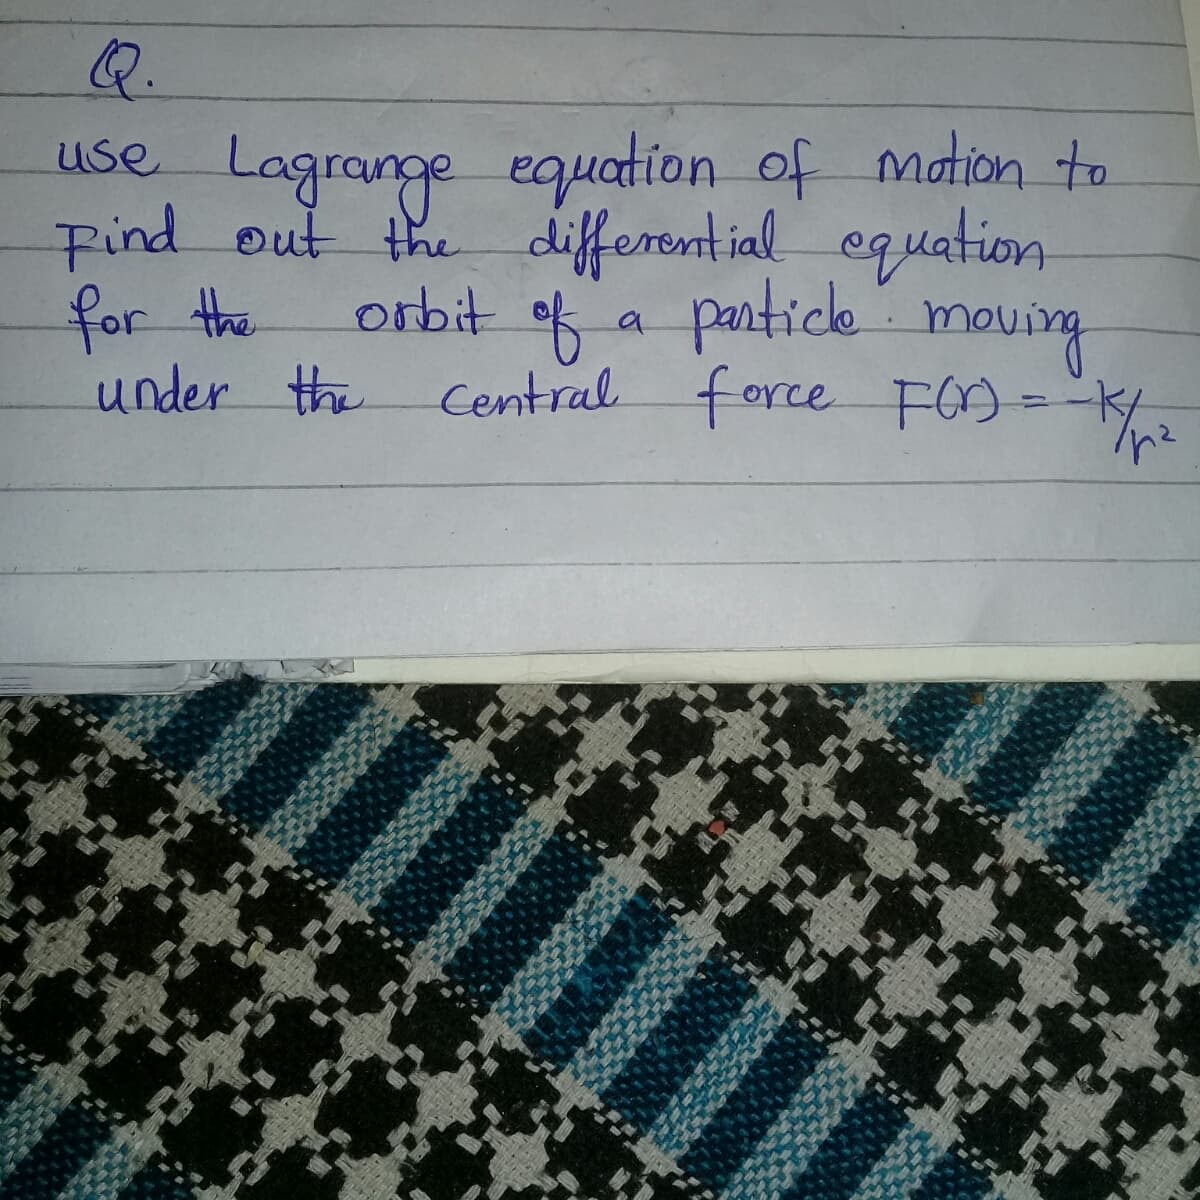 Q.
use Lagrange equation of motion to
Find out the differential equation
for the orbit of a particle moving
under the central force F(r) = -k/r²